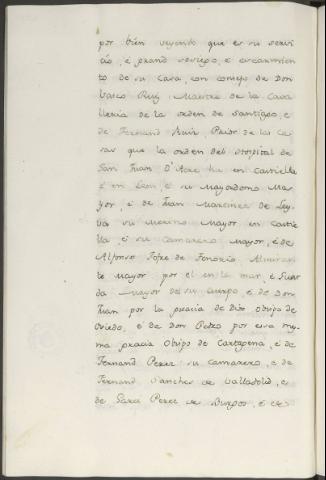 por bien veyendo que es su servi
cio, é grand sosiego, é escarmien
to de su Casa, con consejo de Don
Vasco Ruiz, Maestre de la Cava
lleria de la orden de Santiago, é
de Fernand Ruiz, Prior de las co
sas que la orden del Hospital de
San Juan D'Acre ha en Castiella
é en Leon, é su Mayordomo Ma
yor, é de Juan Martinez de Ley
va su Merino Mayor en Castie
lla, é su Camarero Mayor, é de
Alfonso Jofre de Tenorio Almiran
te Mayor por el en la mar, é Guar
da Mayor de su cuerpo, é de Don
Juan por la gracia de Dios Obispo de
Oviedo, é de Don Pedro por esa mis
ma gracia Obispo de Cartagena, é de
Fernand Perez su Camarero, é de
Fernand Sanchez de Valladolid, é
de Garci Perez de Burgos, é de